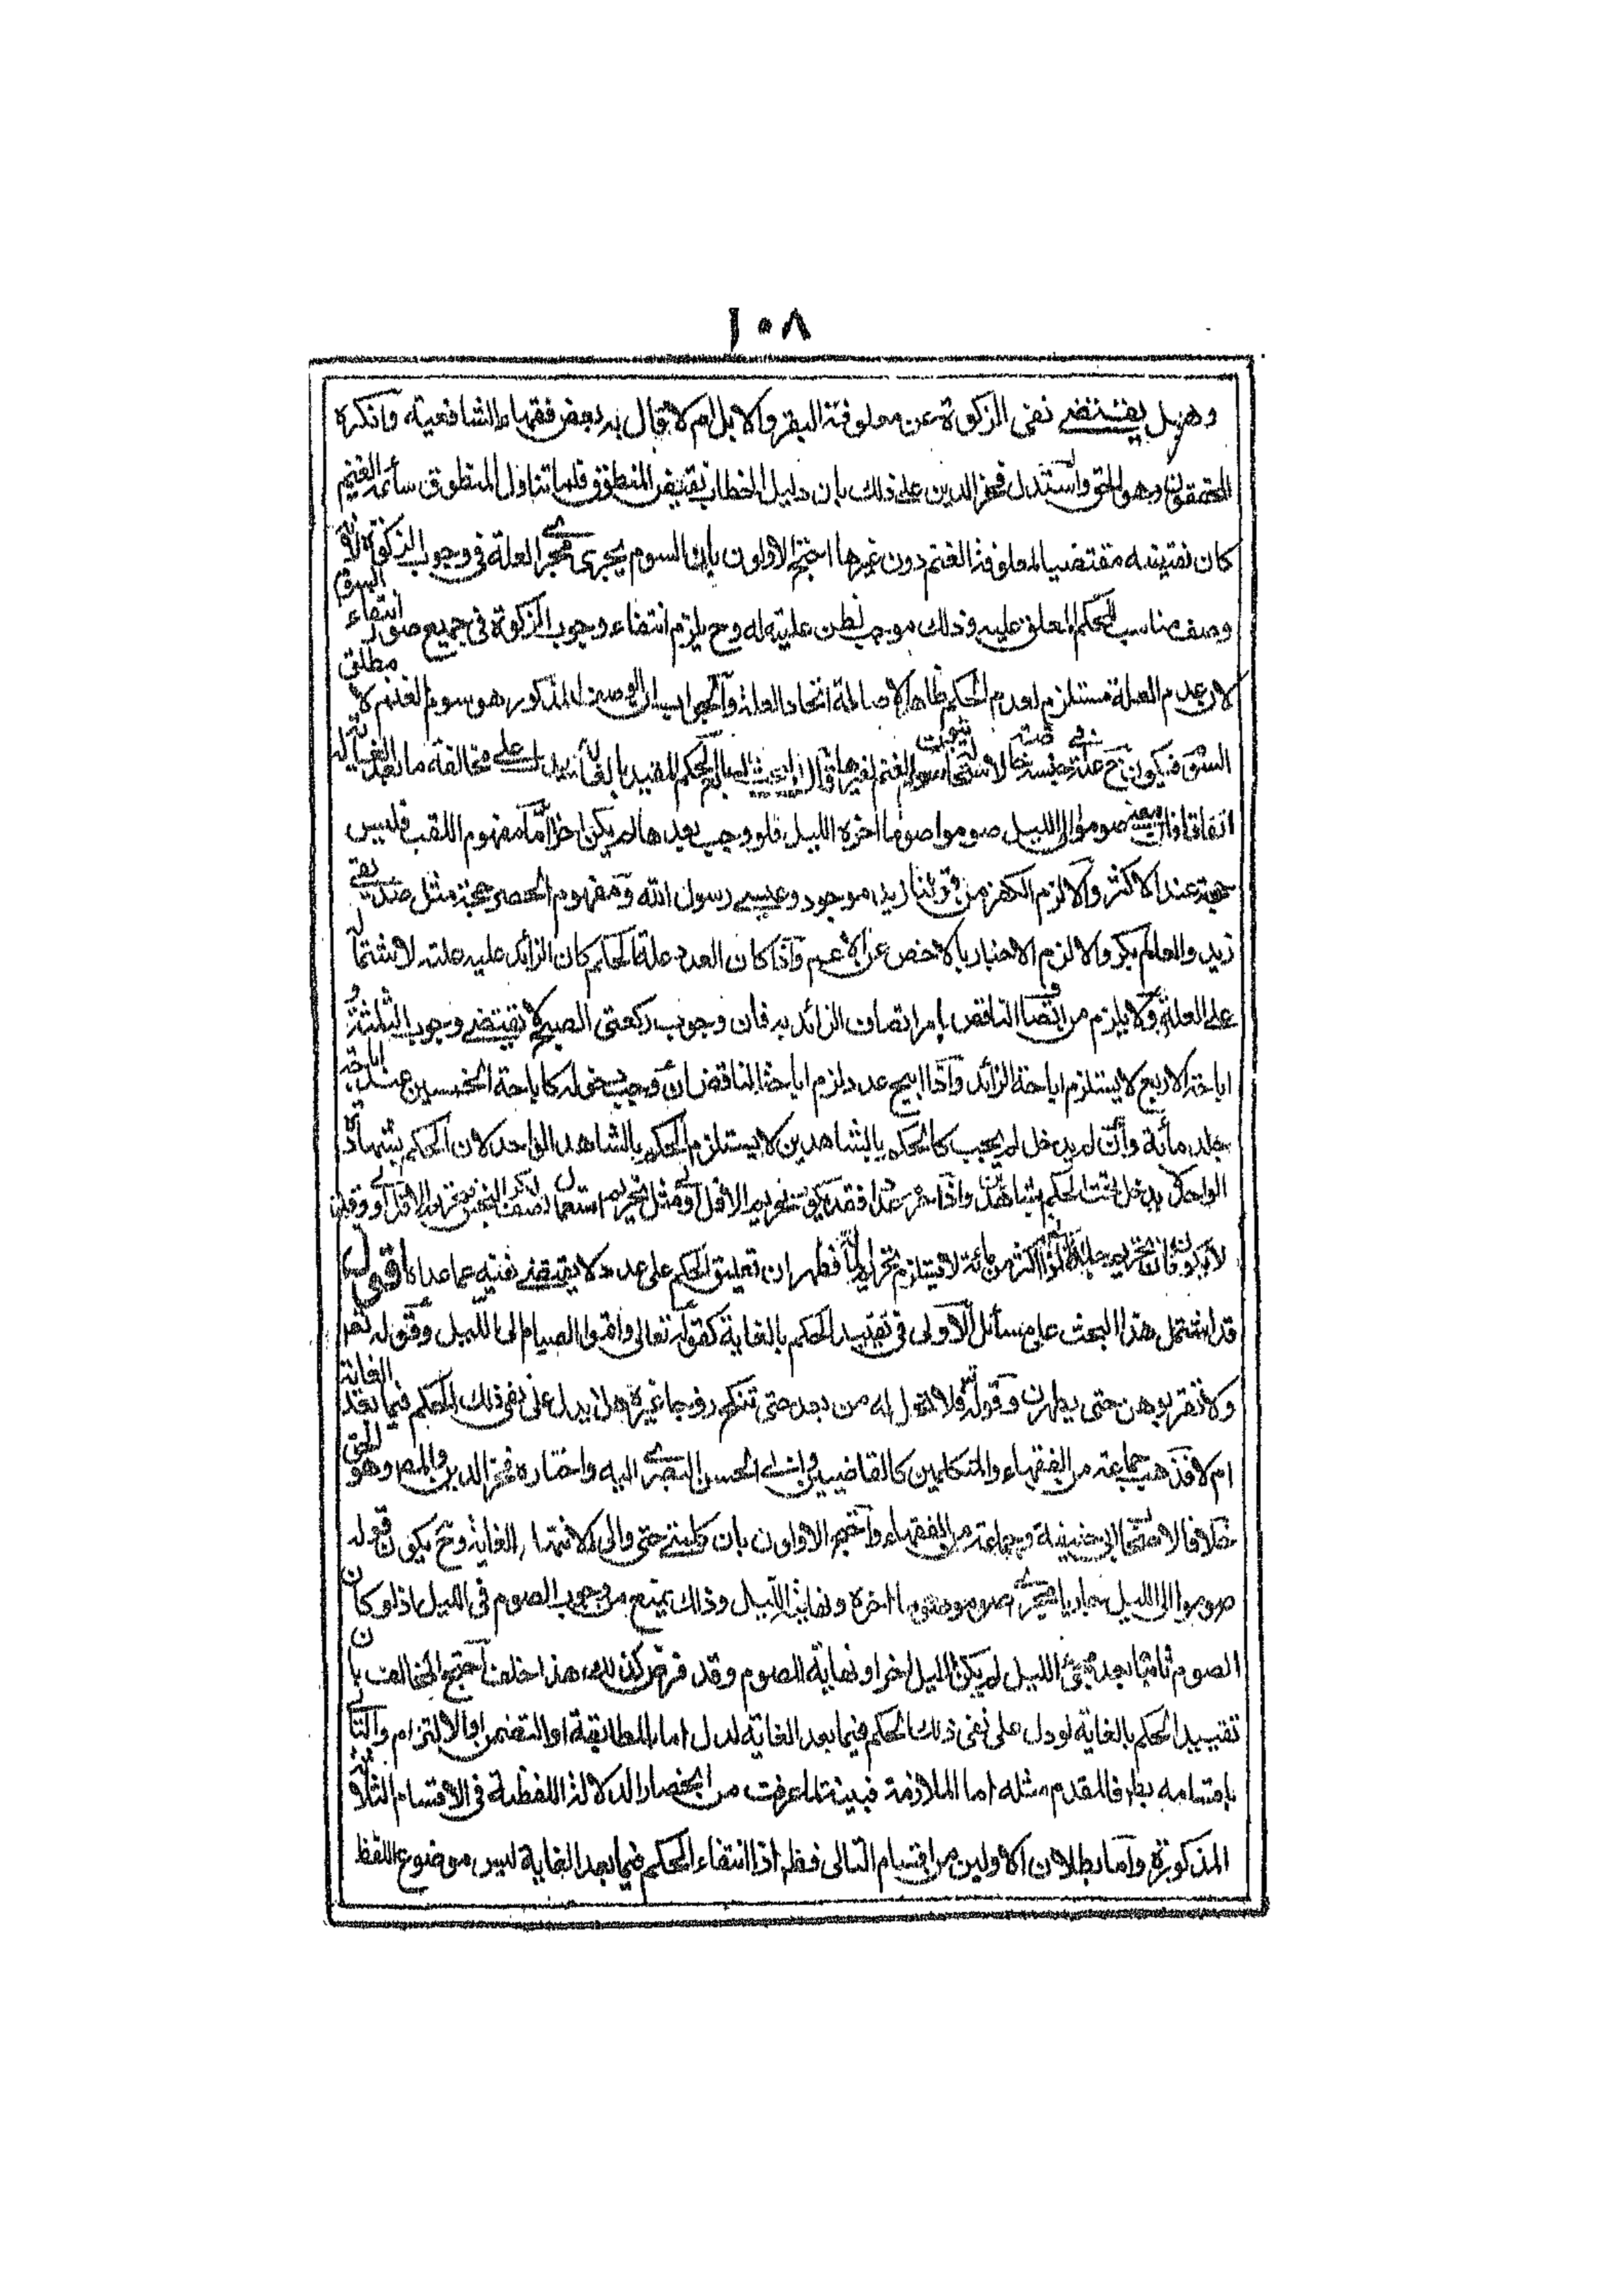 ١٠٨
وهل يقتضى نفى الزكوة عن معلوفة البقر والابل ام لا قال به بعض فقهاء الشافعية وانكره
المحققون وهو الحق واستدل فخر الدين على ذلك بان دليل الخطاب نقيض المنطوق فلما تناول المنطوق سائمة الغنم
كان نقيضه مقتضيا لمعلوفة الغنم دون غيرها احتج الاولون بان السوم يجرى مجرى العلة فى وجوب الزكوة لانه
وصف مناسب للحكم المعلق عليه وذلك موجب لظن عليته له وح يلزم انتفاء وجوب الزكوة فى جميع صور انتفاء السوم
لان عدم العلة مستلزم لعدم الحكم ظاهرا لاصالة اتحاد العلة والجواب ان الوصف المذكور هو سوم الغنم لا مطلق
السوم فيكون ح علة فى جنسه خاصة لاستحالة ثبوت سوم الغنم لغيرها قال البحث الحكم المقيد بالغاية يدل على مخالفة ما بعد الغاية له
اتفاقا فان معنى صوموا الى الليل صوموا صوما اخره الليل فلو وجب بعدها لم يكن اخرا اما مفهوم اللقب فليس
حجة عند الاكثر والا لزم الكفر من قولنا زيد موجود وعيسى رسول الله ومفهوم الحصر حجة مثل صديقى
زيد والعالم بكر والا لزم الاخبار بالاخص عن الاعم واذا كان العدد علة الحكم كان الزائد عليه علة لاشتماله
على العلة ولا يلزم من اتصاف الناقص بامر اتصاف الزائد به فان وجوب ركعتى الصبح لا يقتضى وجوب الثلثة و
اباحة الاربع لا يستلزم اباحة الزائد واذا ابيح عدد لزم اباحة الناقص ان وجب دخوله كاباحة الخمسين عند اباحة
جلد مائة وان لم يدخل لم يجب كالحكم بالشاهدين لا يستلزم الحكم بالشاهد الواحد لان الحكم بشهادة
الواحد لا يدخل تحت الحكم بشهادة واذا حرم عدد فقد يكون تحريم الاقل اولى مثل تحريم استعمال نصف الكر النجس تحريم الاقل اولى وقد
لا يكون فان تحريم جلد الزانى اكثر من مائة لا يستلزم تحريم المائة فظهر ان تعليق الحكم على عدد لا يقتضى نفيه عما عداه اقول
قد اشتمل هذا البحث على مسائل الاولى فى تقييد الحكم بالغاية كقوله تعالى واتموا الصيام الى الليل وقوله تعم
ولا تقربوهن حتى يطهرن وقوله فلا تحل له من بعد حتى تنكح زوجا غيره هل يدل على نفى ذلك الحكم فيما بعد الغاية
ام لا فذهب جماعة من الفقهاء والمتكلمين كالقاضيين وابى الحسين البصرى اليه واختاره فخر الدين والمص وهو الحق
خلافا لاصحاب ابى حنيفة وجماعة من الفقهاء واحتج الاولون بان كلمتى حتى والى لانتهاء الغاية وح يكون قوله
صوموا الى الليل جاريا مجرى صوموا صوما اخره ونهايته الليل وذلك يمنع من وجوب الصوم فى الليل اذ لو كان
الصوم ثابتا بعد مجئ الليل لم يكن الليل اخرا ونهاية للصوم وقد فرض كذلك هذا خلف احتج المخالف بان
تقييد الحكم بالغاية لو دل على نفى ذلك الحكم فيما بعد الغاية لدل اما بالمطابقة او التضمن او الالتزام والتالى
باقسامه بط فالمقدم مثله اما الملازمة فبينة لما عرفت من انحصار الدلالة اللفظية فى الاقسام الثلاثة
المذكورة واما بطلان الاولين من اقسام التالى فظ اذ انتفاء الحكم فيما بعد الغاية ليس موضوع اللفظ